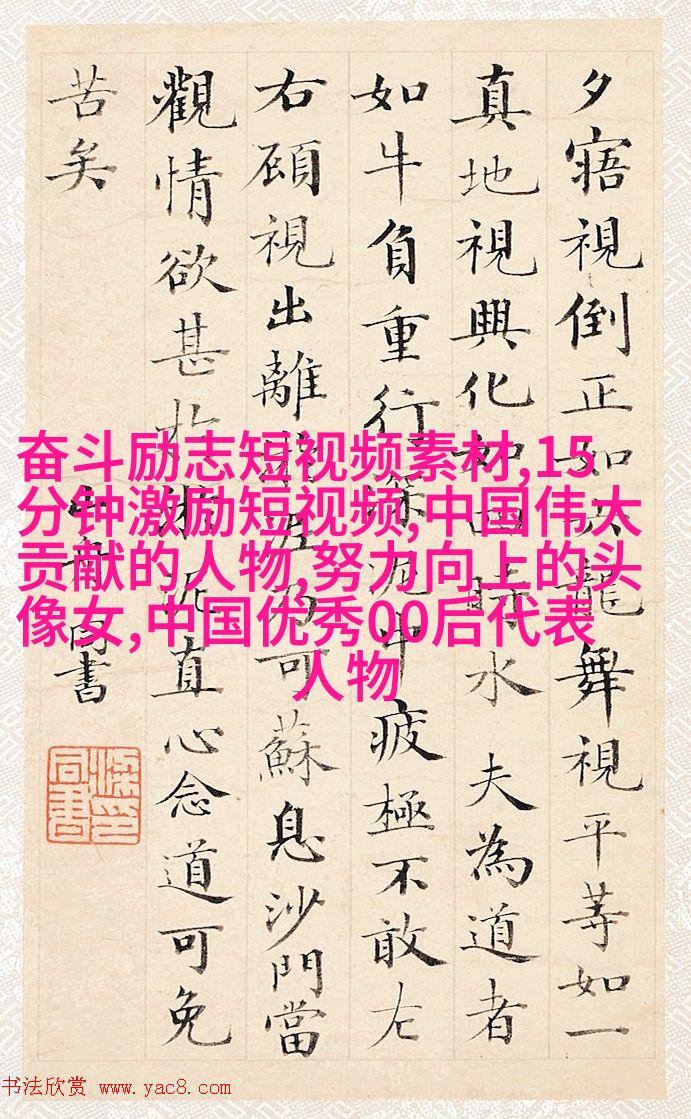 夕寤視倒正如六龍舞視平等如一
真地視興化如四時水 夫為道者
如牛負重行深泥中疲極不敢左
右顧視出離淤泥乃可蘇息沙門當
觀情欲甚於淤泥直心念道可免
苦矣
同書
梁同書印
奋斗励志短视频素材,15
分钟激励短视频,中国伟大
贡献的人物,努力向上的头
像女,中国优秀00后代表
人物
书法欣赏 www.yac8.com